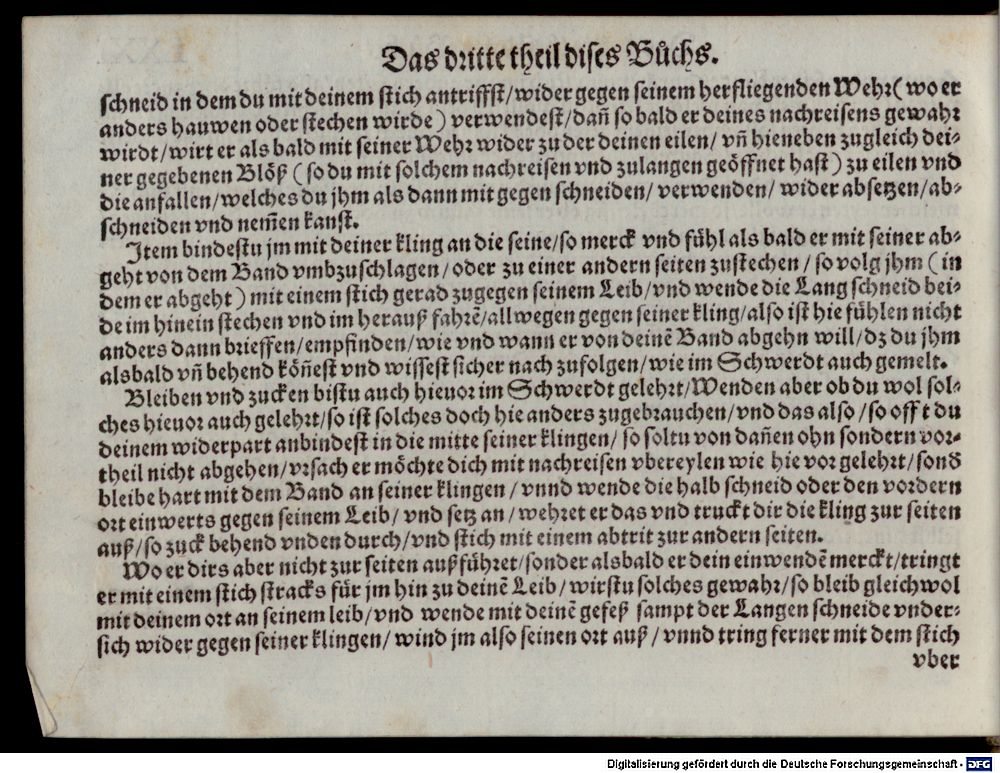 Das dritte theil dises Bůchs.
schneid in dem du mit deinem stich antriffst/wider gegen seinem herfliegenden Wehr(wo er
anders hauwen oder stechen wirde) verwendest/dañ so bald er deines nachreisens gewahr
wirdt/wirt er als bald mit seiner Wehr wider zu der deinen eilen/ vñ hieneben zugleich dei⸗
ner gegebenen Blöß (so du mit solchem nachreisen vnd zulangen geöffnet hast) zu eilen vnd
die anfallen/welches du jhm als dann mit gegen schneiden/ verwenden/ wider absetzen/ab⸗
schneiden vnd nem̃en kanst.
Item bindestu jm mit deiner kling an die seine/so merck vnd fühl als bald er mit seiner ab⸗
geht von dem Band vmbzuschlagen/oder zu einer andern seiten zustechen/so volg jhm (in
dem er abgeht) mit einem stich gerad zugegen seinem Leib/vnd wende die Lang schneid bei⸗
de im hinein stechen vnd im herauß fahrẽ/allwegen gegen seiner kling/also ist hie fühlen nicht
anders dann brieffen/empfinden/wie vnd wann er von deinẽ Band abgehn will/dz du jhm
alsbald vñ behend köñest vnd wissest sicher nach zufolgen/wie im Schwerdt auch gemelt.
Bleiben vnd zucken bistu auch hieuor im Schwerdt gelehrt/Wenden aber ob du wol sol⸗
ches hieuor auch gelehrt/so ist solches doch hie anders zugebrauchen/vnd das also/so offt du
deinem widerpart anbindest in die mitte seiner klingen/ so soltu von dañen ohn sondern vor⸗
theil nicht abgehen/vrsach er möchte dich mit nachreisen vbereylen wie hie vor gelehrt/sond
bleibe hart mit dem Band an seiner klingen/vnnd wende die halb schneid oder den vordern
ort einwerts gegen seinem Leib/ vnd setz an/wehret er das vnd truckt dir die kling zur seiten
auß/so zuck behend vnden durch/vnd stich mit einem abtrit zur andern seiten.
Wo er dirs aber nicht zur seiten außführet/sonder alsbald er dein einwendẽ merckt/tringt
er mit einem stich stracks für jm hin zu deinẽ Leib/ wirstu solches gewahr/so bleib gleichwol
mit deinem ort an seinem leib/vnd wende mit deinẽ gefeß sampt der Langen schneide vnder⸗
sich wider gegen seiner klingen/ wind jm also seinen ort auß/vnnd tring ferner mit dem stich
vber
Digitalisierung gefördert durch die Deutsche Forschungsgemeinschaft - DFG